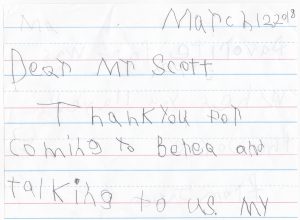 March 12 2018
Dear Mr Scott
Thank you for
coming to Berea and
talking to us. My